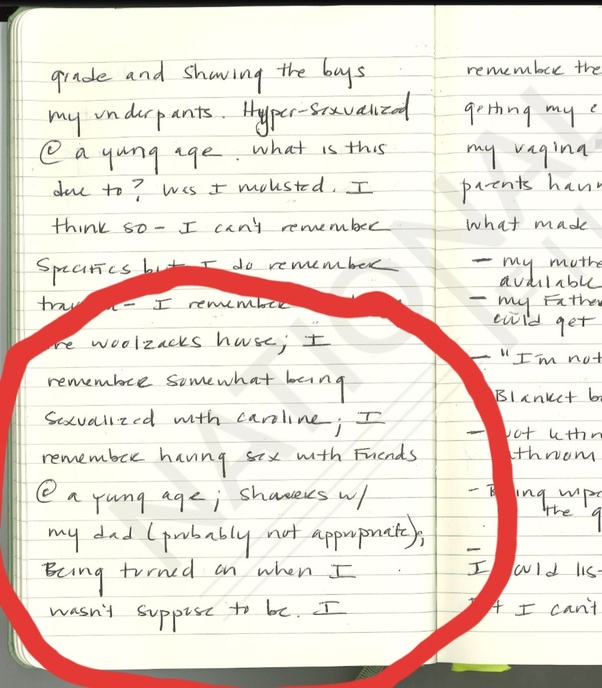 grade and showing the boys
my underpants. Hyper-Sexualized
@ a yung age. what is this
due to? Was I molested. I
think so - I can't remember
Specifics but I do remember
I remember
woolzacks house; I
remember somewhat being
sexualized with caroline; I
remember having sex with Friends
@ a yung age; showers w/
my dad (probably not appropriate);
Being turned on when I
wasn't suppose to be. I
remember the
getting my
my vagina
parents
what made
- my mothe
available
- my Father
could get
- "I'm not
Blanket
- not
- 
the
-
I
I can't
NATIONAL